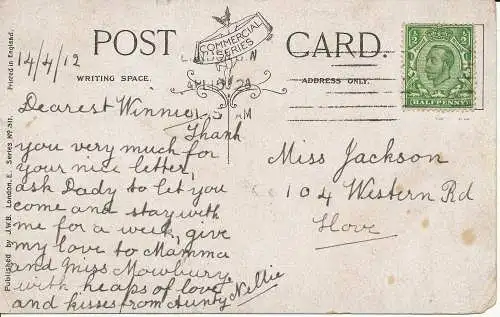 POST CARD.
COMMERCIAL
SERIES
14/4/12
WRITING SPACE.
ADDRESS ONLY.
HALFPENNY
Dearest Winnie,
Thank
you very much for
your nice letter,
ask Dady to let you
come and stay with
me for a week, give
my love to Mamma
and Miss Mowbury,
with heaps of love
and kisses from Aunty Nellie
Miss Jackson
104 Western Rd
Hove
Printed in England.
Published by J.W.B. London, E. Series No 311.